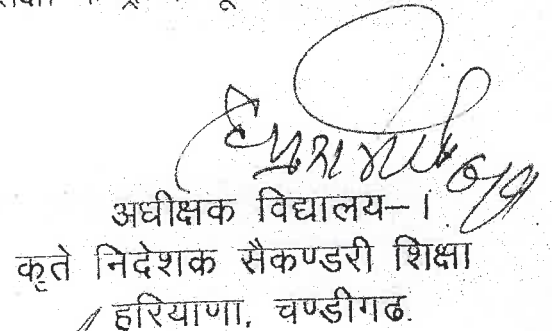 अधीक्षक विद्यालय–।
कृते निदेशक सैकण्डरी शिक्षा
हरियाणा, चण्डीगढ.